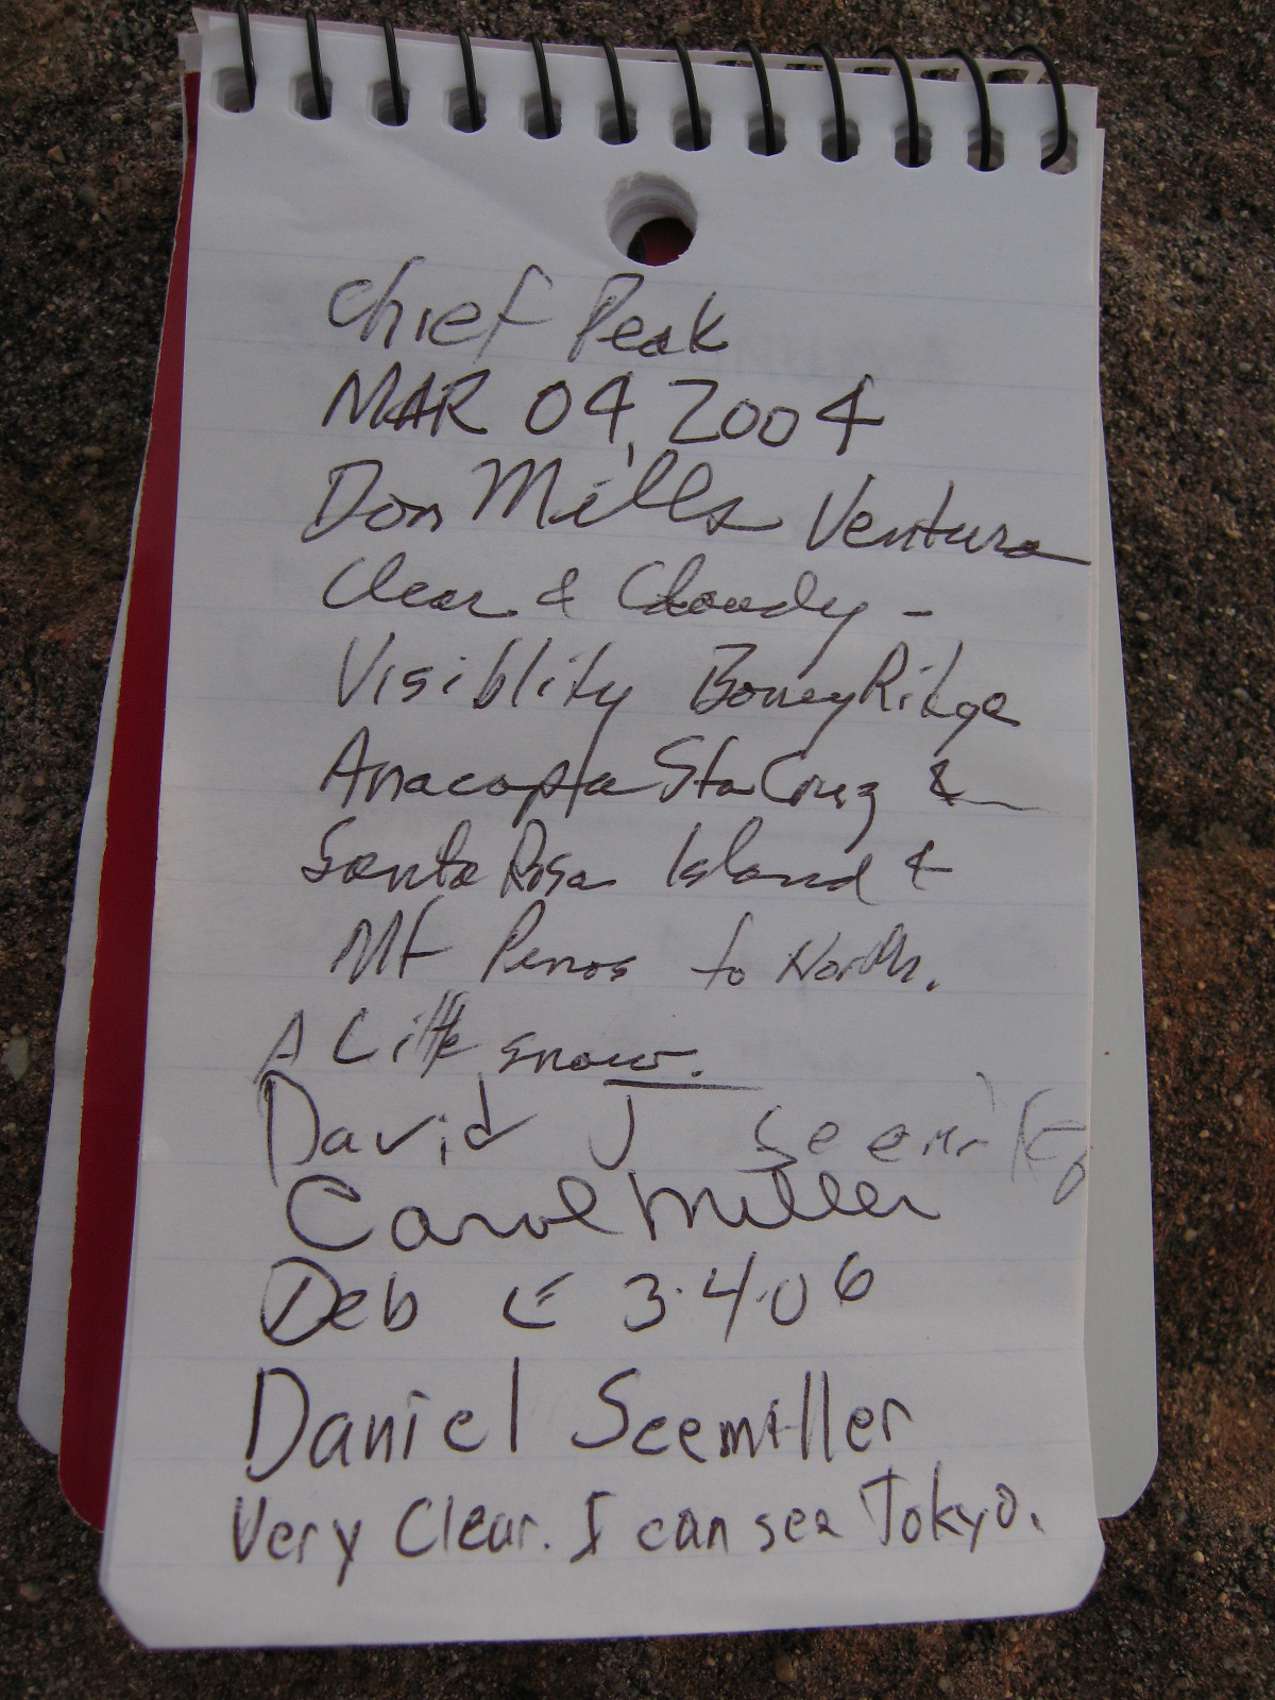 Chief Peak
MAR 04, 2004
Don Mills Ventura
Clear & Cloudy -
Visiblity Boney Ridge
Anacapta Sta Cruz &
Santa Rosa Island &
Mt Penos to North.
A Little snow.
David J
Carol Miller
Deb 3.4.06
Daniel Seemiller
Very Clear. I can see Tokyo.